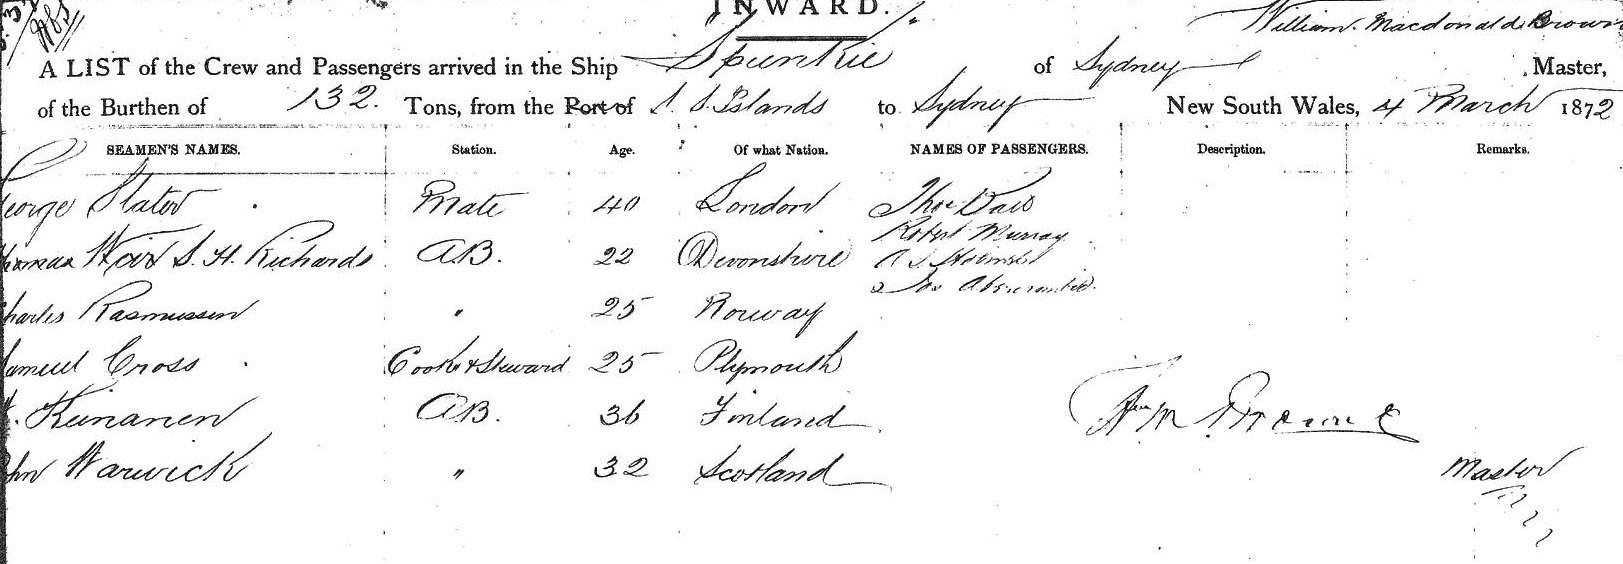 INWARD.
William Macdonald Brown
A LIST of the Crew and Passengers arrived in the Ship Spunkie of Sydney , Master,
of the Burthen of 132. Tons, from the Port of S. S. Islands to Sydney New South Wales, 4 March 1872
SEAMEN'S NAMES. Station. Age. Of what Nation. NAMES OF PASSENGERS. Description. Remarks.
eorge Slater Mate 40 London Thos
Robert Murray
homas S. H. Richards A.B. 22 Devonshire
Abercrombie.
harles Rasmussen " 25 Norway
amuel Cross Cook & Steward 25 Plymouth
Keinanen A.B. 36 Finland
Wm M Browne
ohn Warwick " 32 Scotland
Master